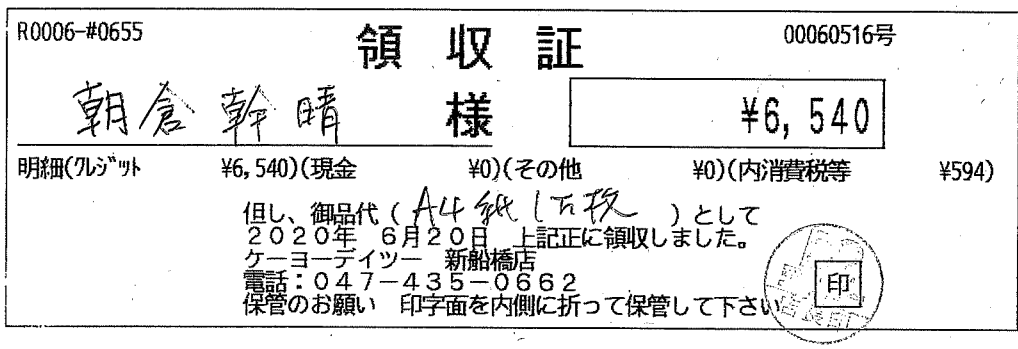 R0006-#0655 領 収 証 00060516号
朝倉 幹晴 様 ¥6,540
明細(クレジット ¥6,540)(現金 ¥0)(その他 ¥0)(内消費税等 ¥594)
但し、御品代(A4紙1万枚)として
2020年 6月20日 上記正に領収しました。
ケーヨーデイツー 新船橋店
電話:047-435-0662
保管のお願い 印字面を内側に折って保管して下さい
印